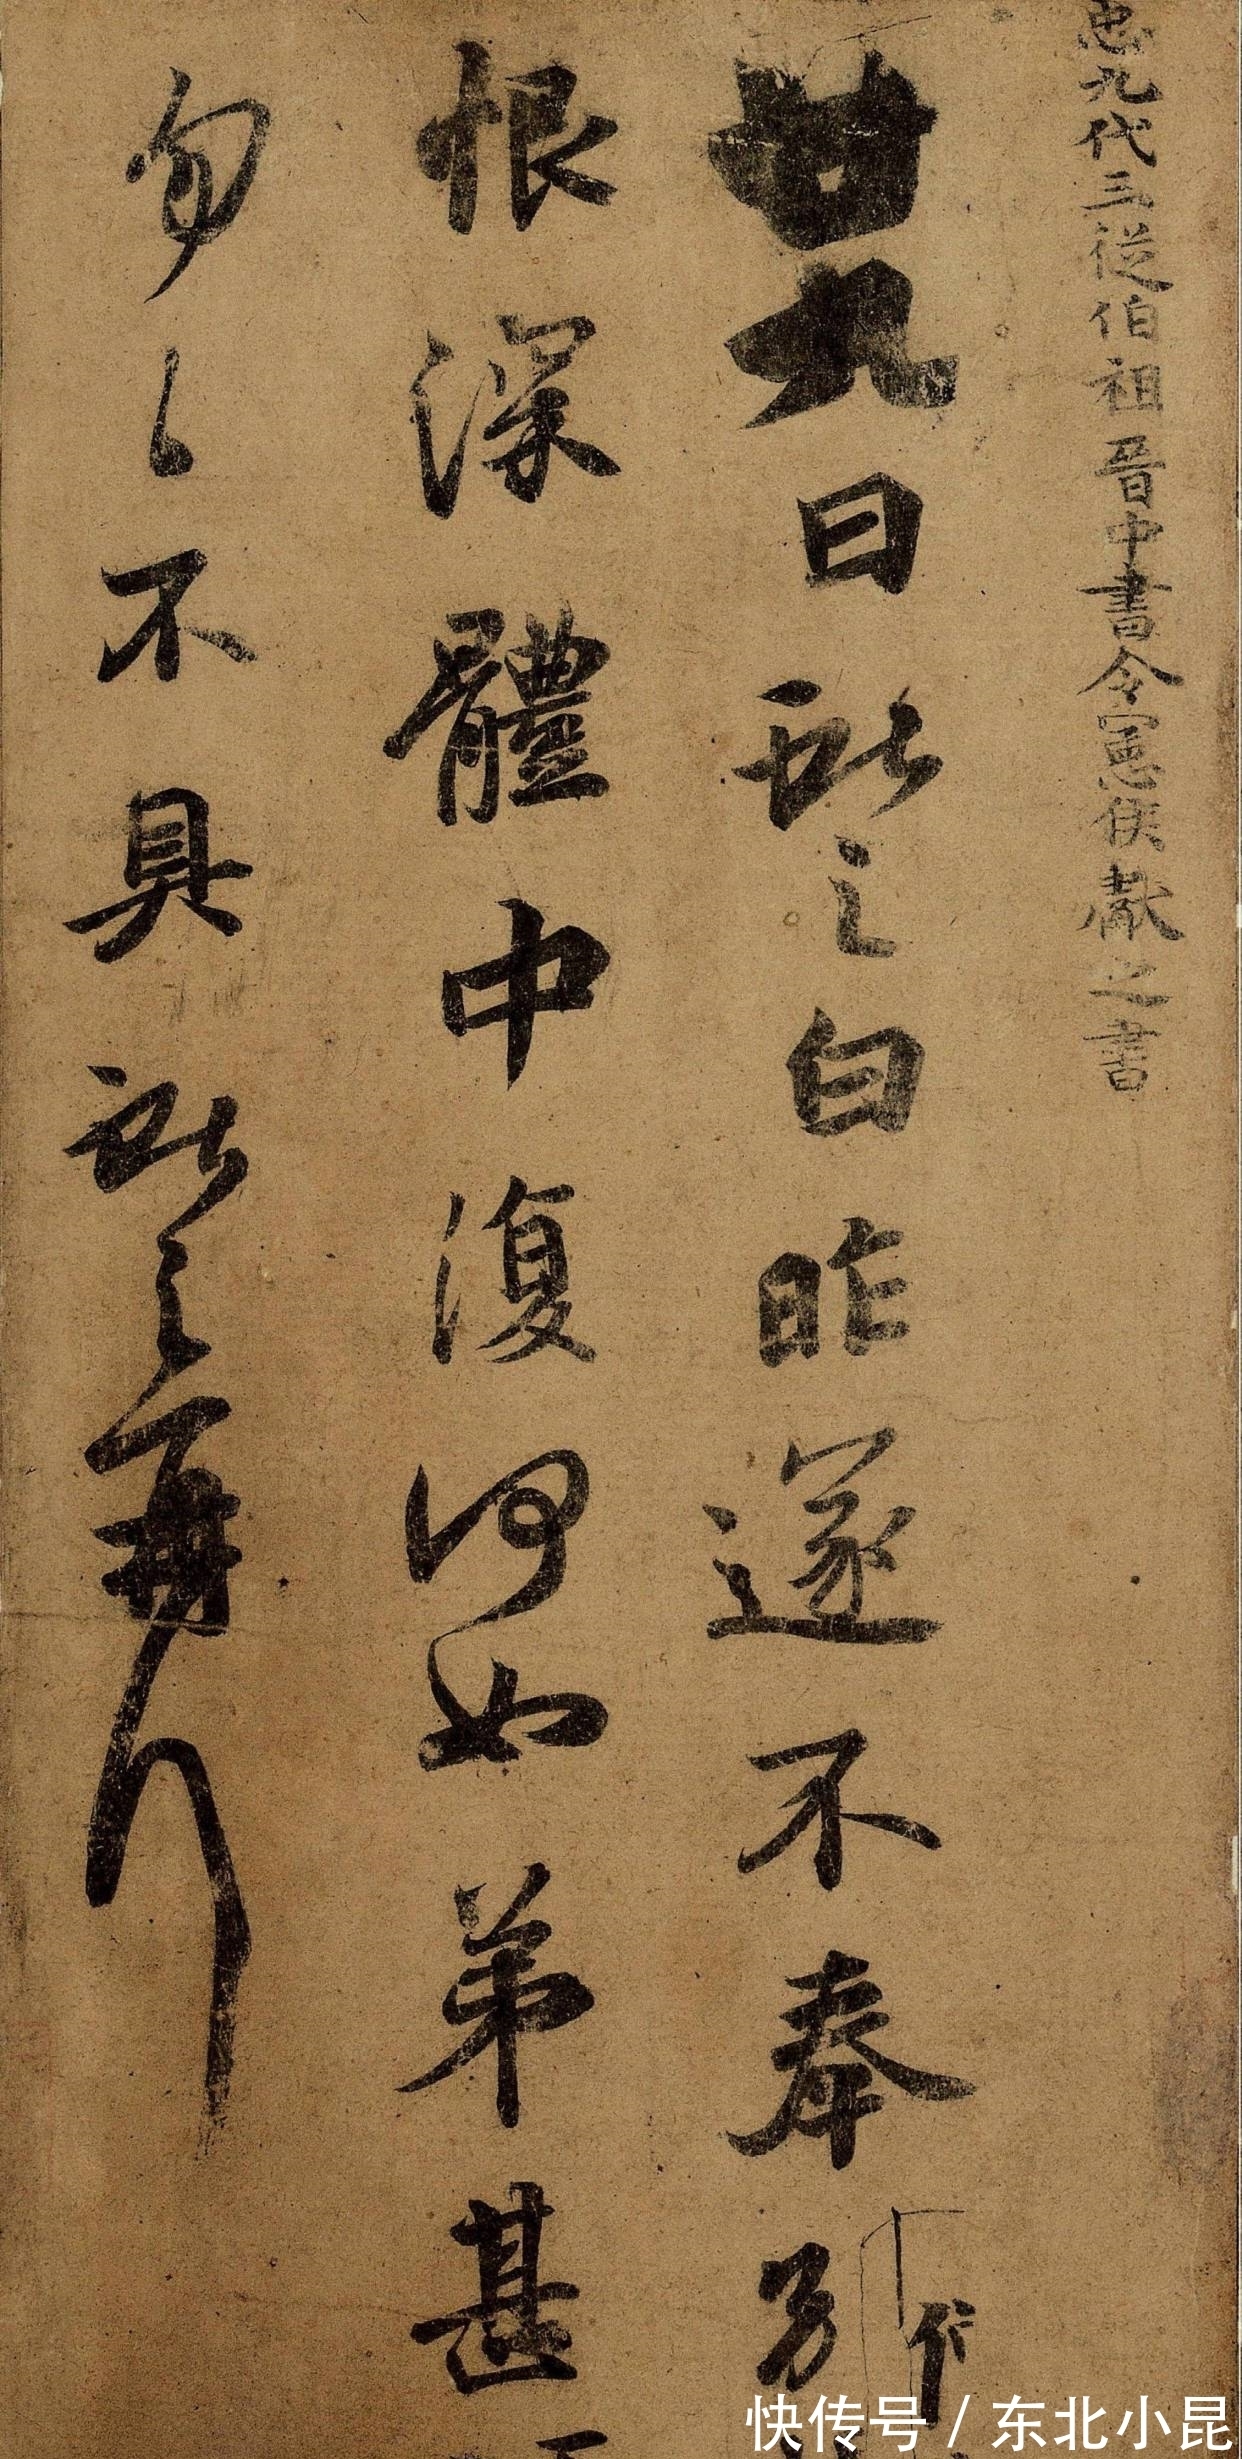 忠九代三從伯祖晉中書令憲侯獻之書
廿九日獻之白昨遂不奉別
恨深體中復何如弟甚
勿〻不具獻之再拜
快传号 / 东北小昆